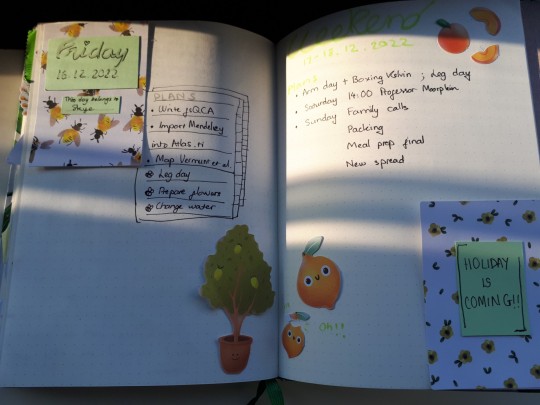 Friday
16.12.2022
This day belongs to
PLANS
• Write
• Import Mendeley
into Atlas.ti
• Map Vermunt et al.
Leg day
Prepare flowers
Change water
Weekend
17-18.12.2022
• Arm day + Boxing ; Leg day
• Saturday 14:00 Professor
• Sunday Family calls
Packing
Meal prep final
New spread
Oh!!
HOLIDAY
IS
COMING!!